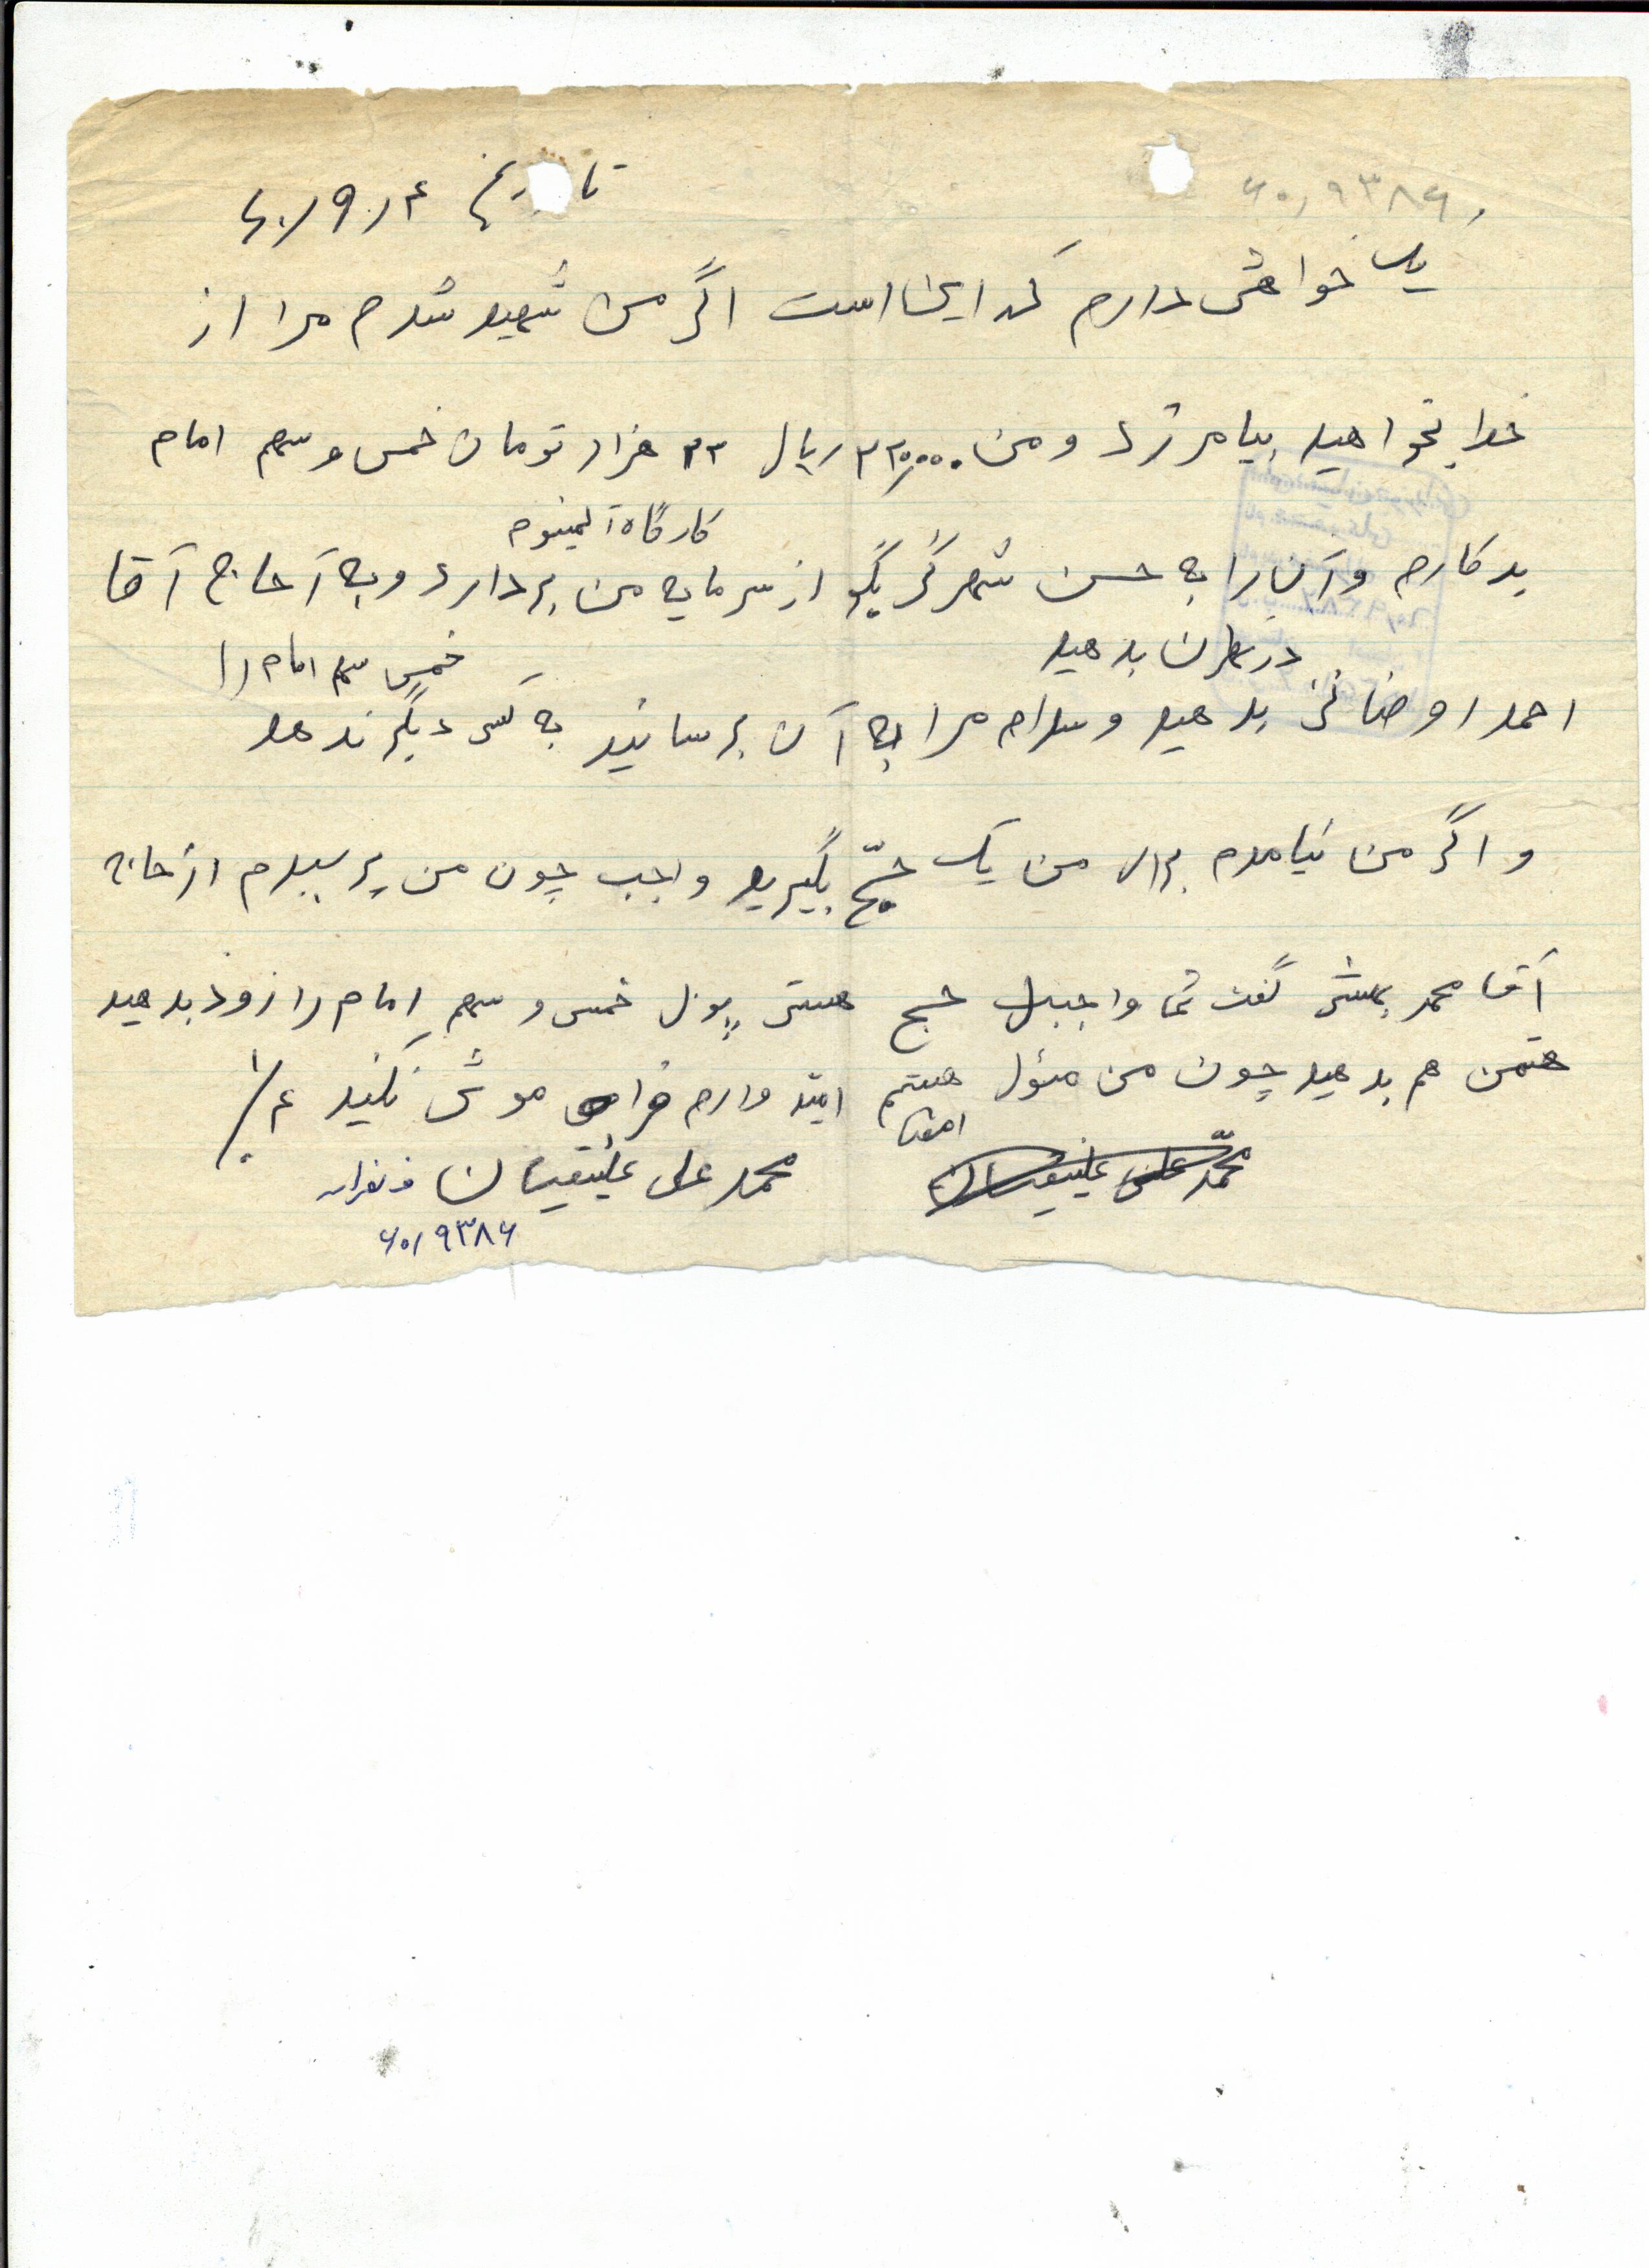 ۶۰٫۹۳۸۶
تاریخ ۶۰/۹/۴
یک خواهش دارم که این است اگر من شهید شدم مرا از
خدا بخواهید بیامرزد و من ۳۳۰٫۰۰۰ ریال ۳۳ هزار تومان خمس و سهم امام
کارگاه آلمینوم
بدکارم و آن را به حسن بگو از سرمایه من بردارد و به آ حاج آقا
در طهران بدهید
خمس سهم امام را
احمد بدهید و سلام مرا به آن برسانید به کس دیگر ندهد
و اگر من نیامدم برای من یک حجّ بگیرید واجب چون من پرسیدم از حاج
آقا محمد گفت شما واجبل حج هستی پول خمس و سهم امام را زود بدهید
حتمن هم بدهید چون من مئول هستم امید وارم فرا موش نکنید
امضاء
محمّد علی علینقیان
محمد علی علینقیان
۶۰٫۹۳۸۶